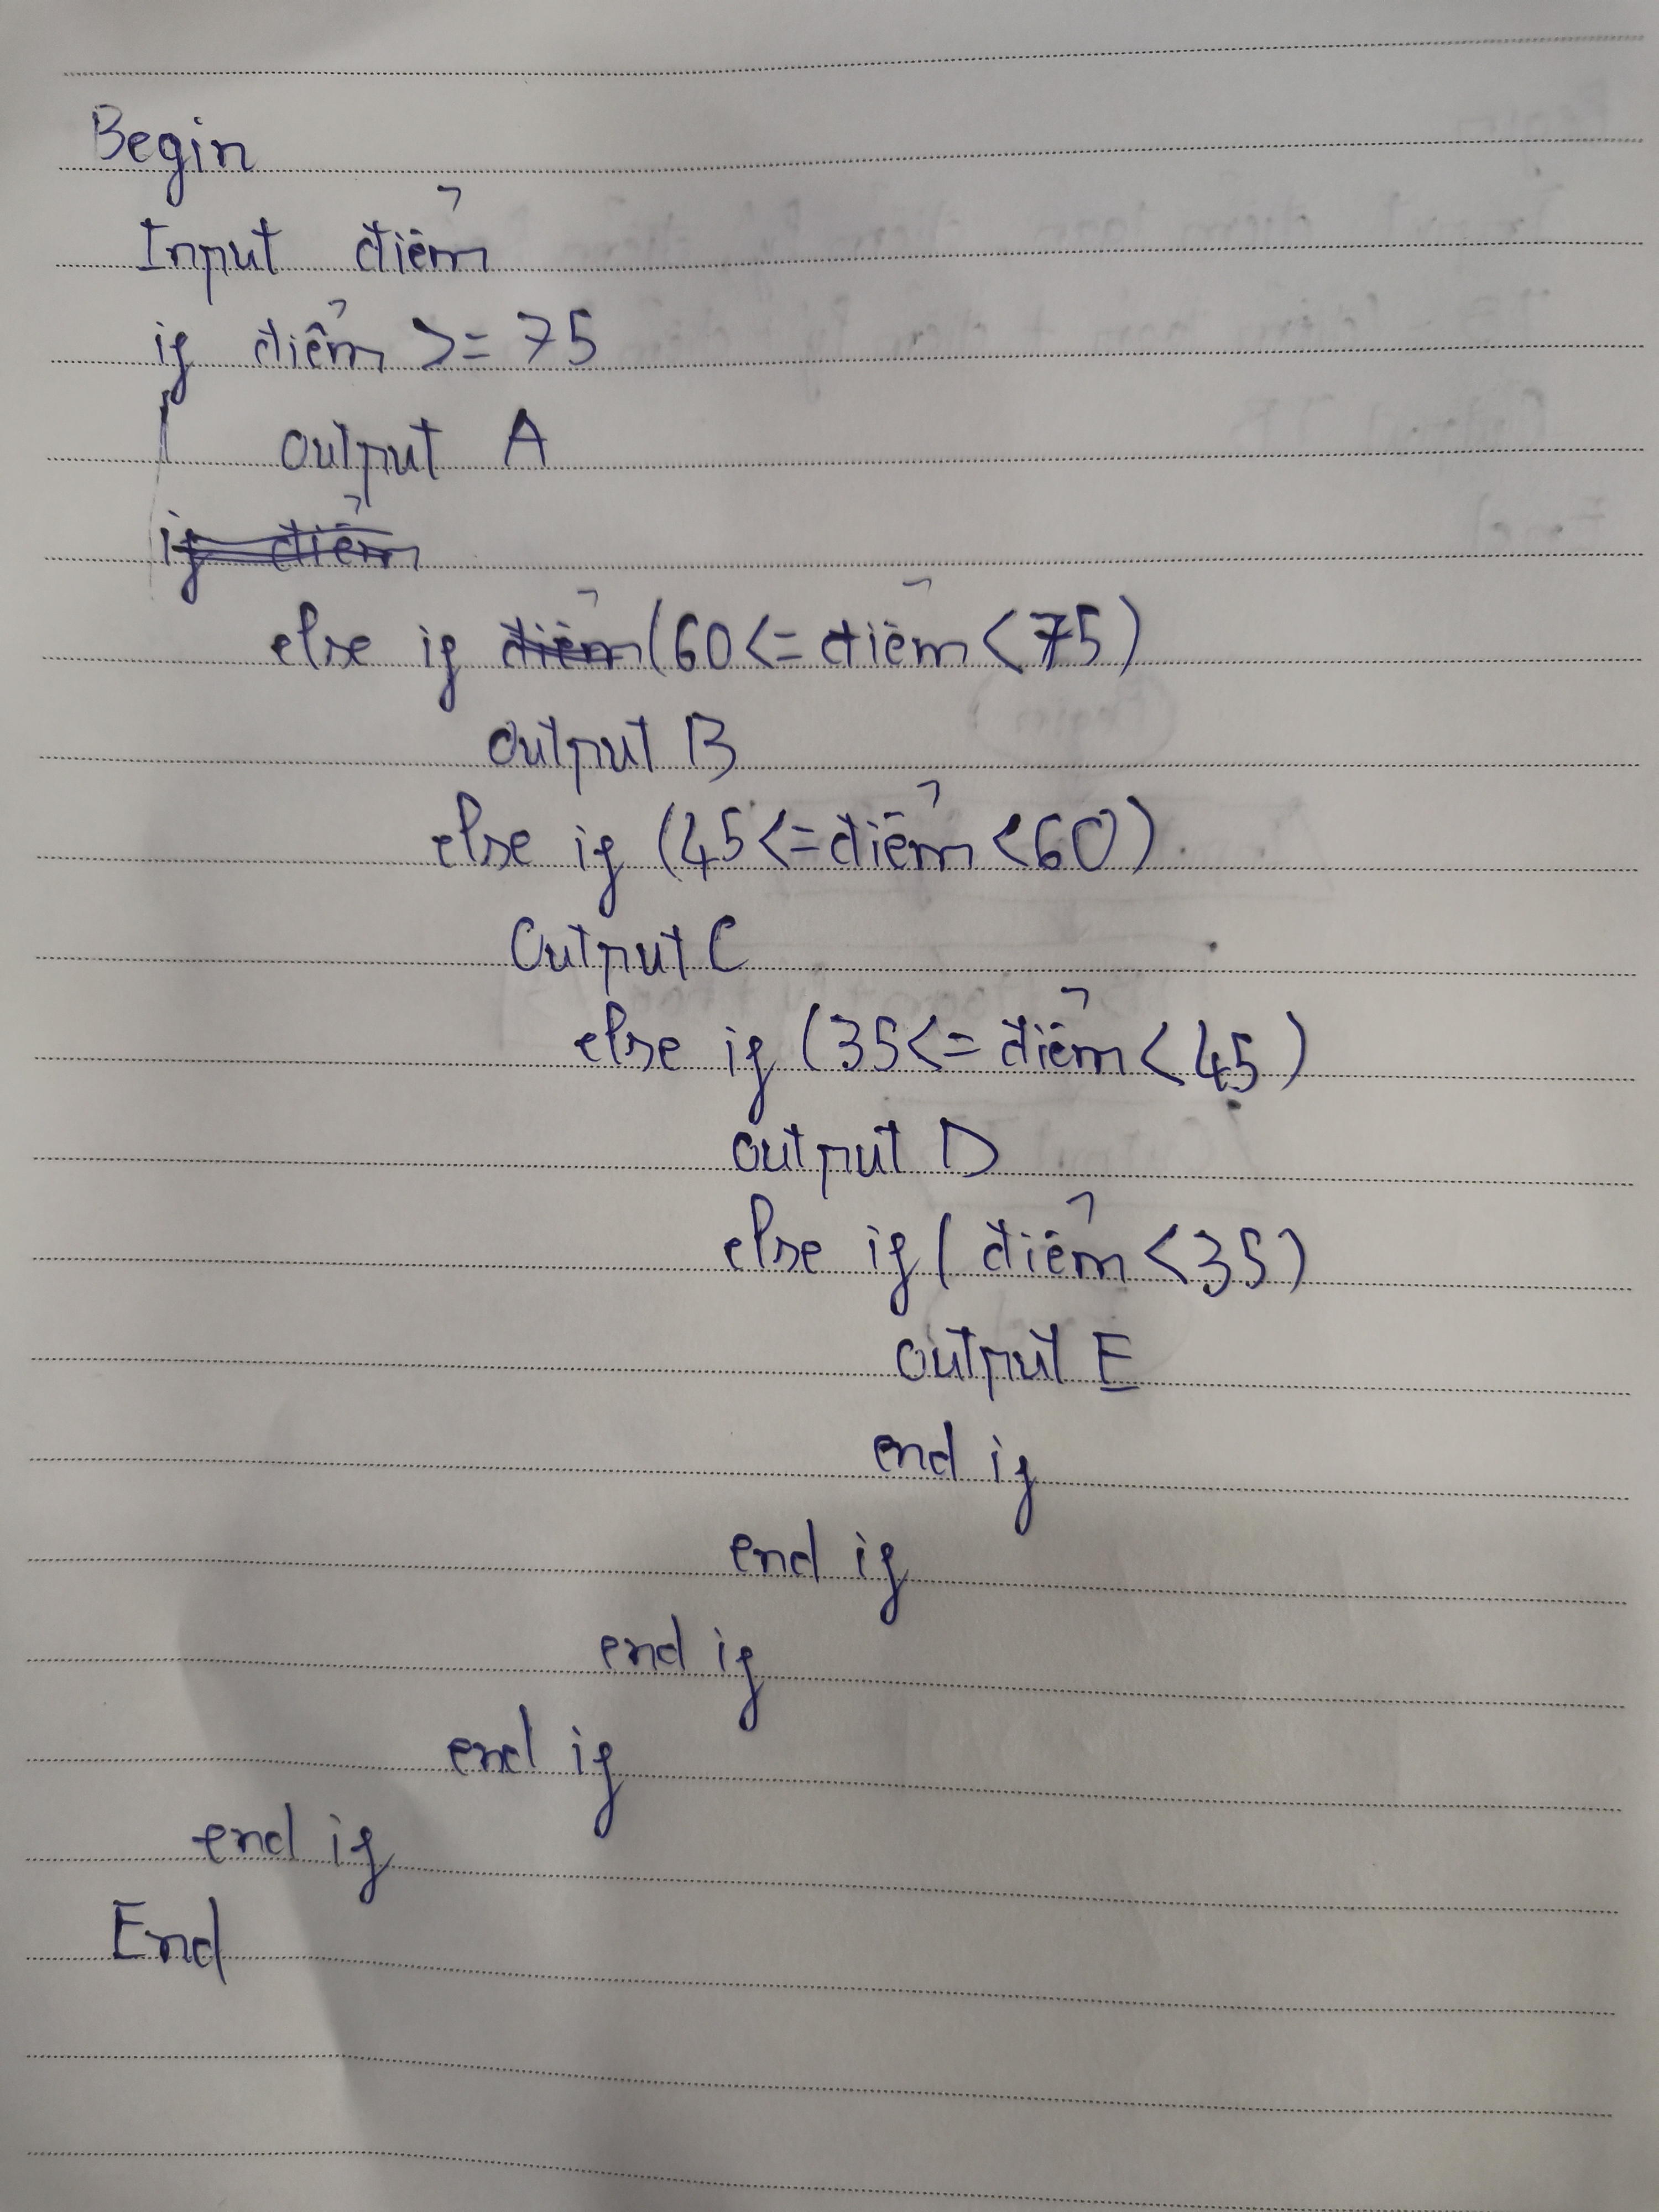 Begin
Input điểm
if điểm >= 75
output A
if điểm
else if điểm (60 <= điểm < 75)
output B
else if (45 <= điểm < 60)
Output C
else if (35 <= điểm < 45)
output D
else if ( điểm < 35)
output E
end if
end if
end if
end if
end if
End